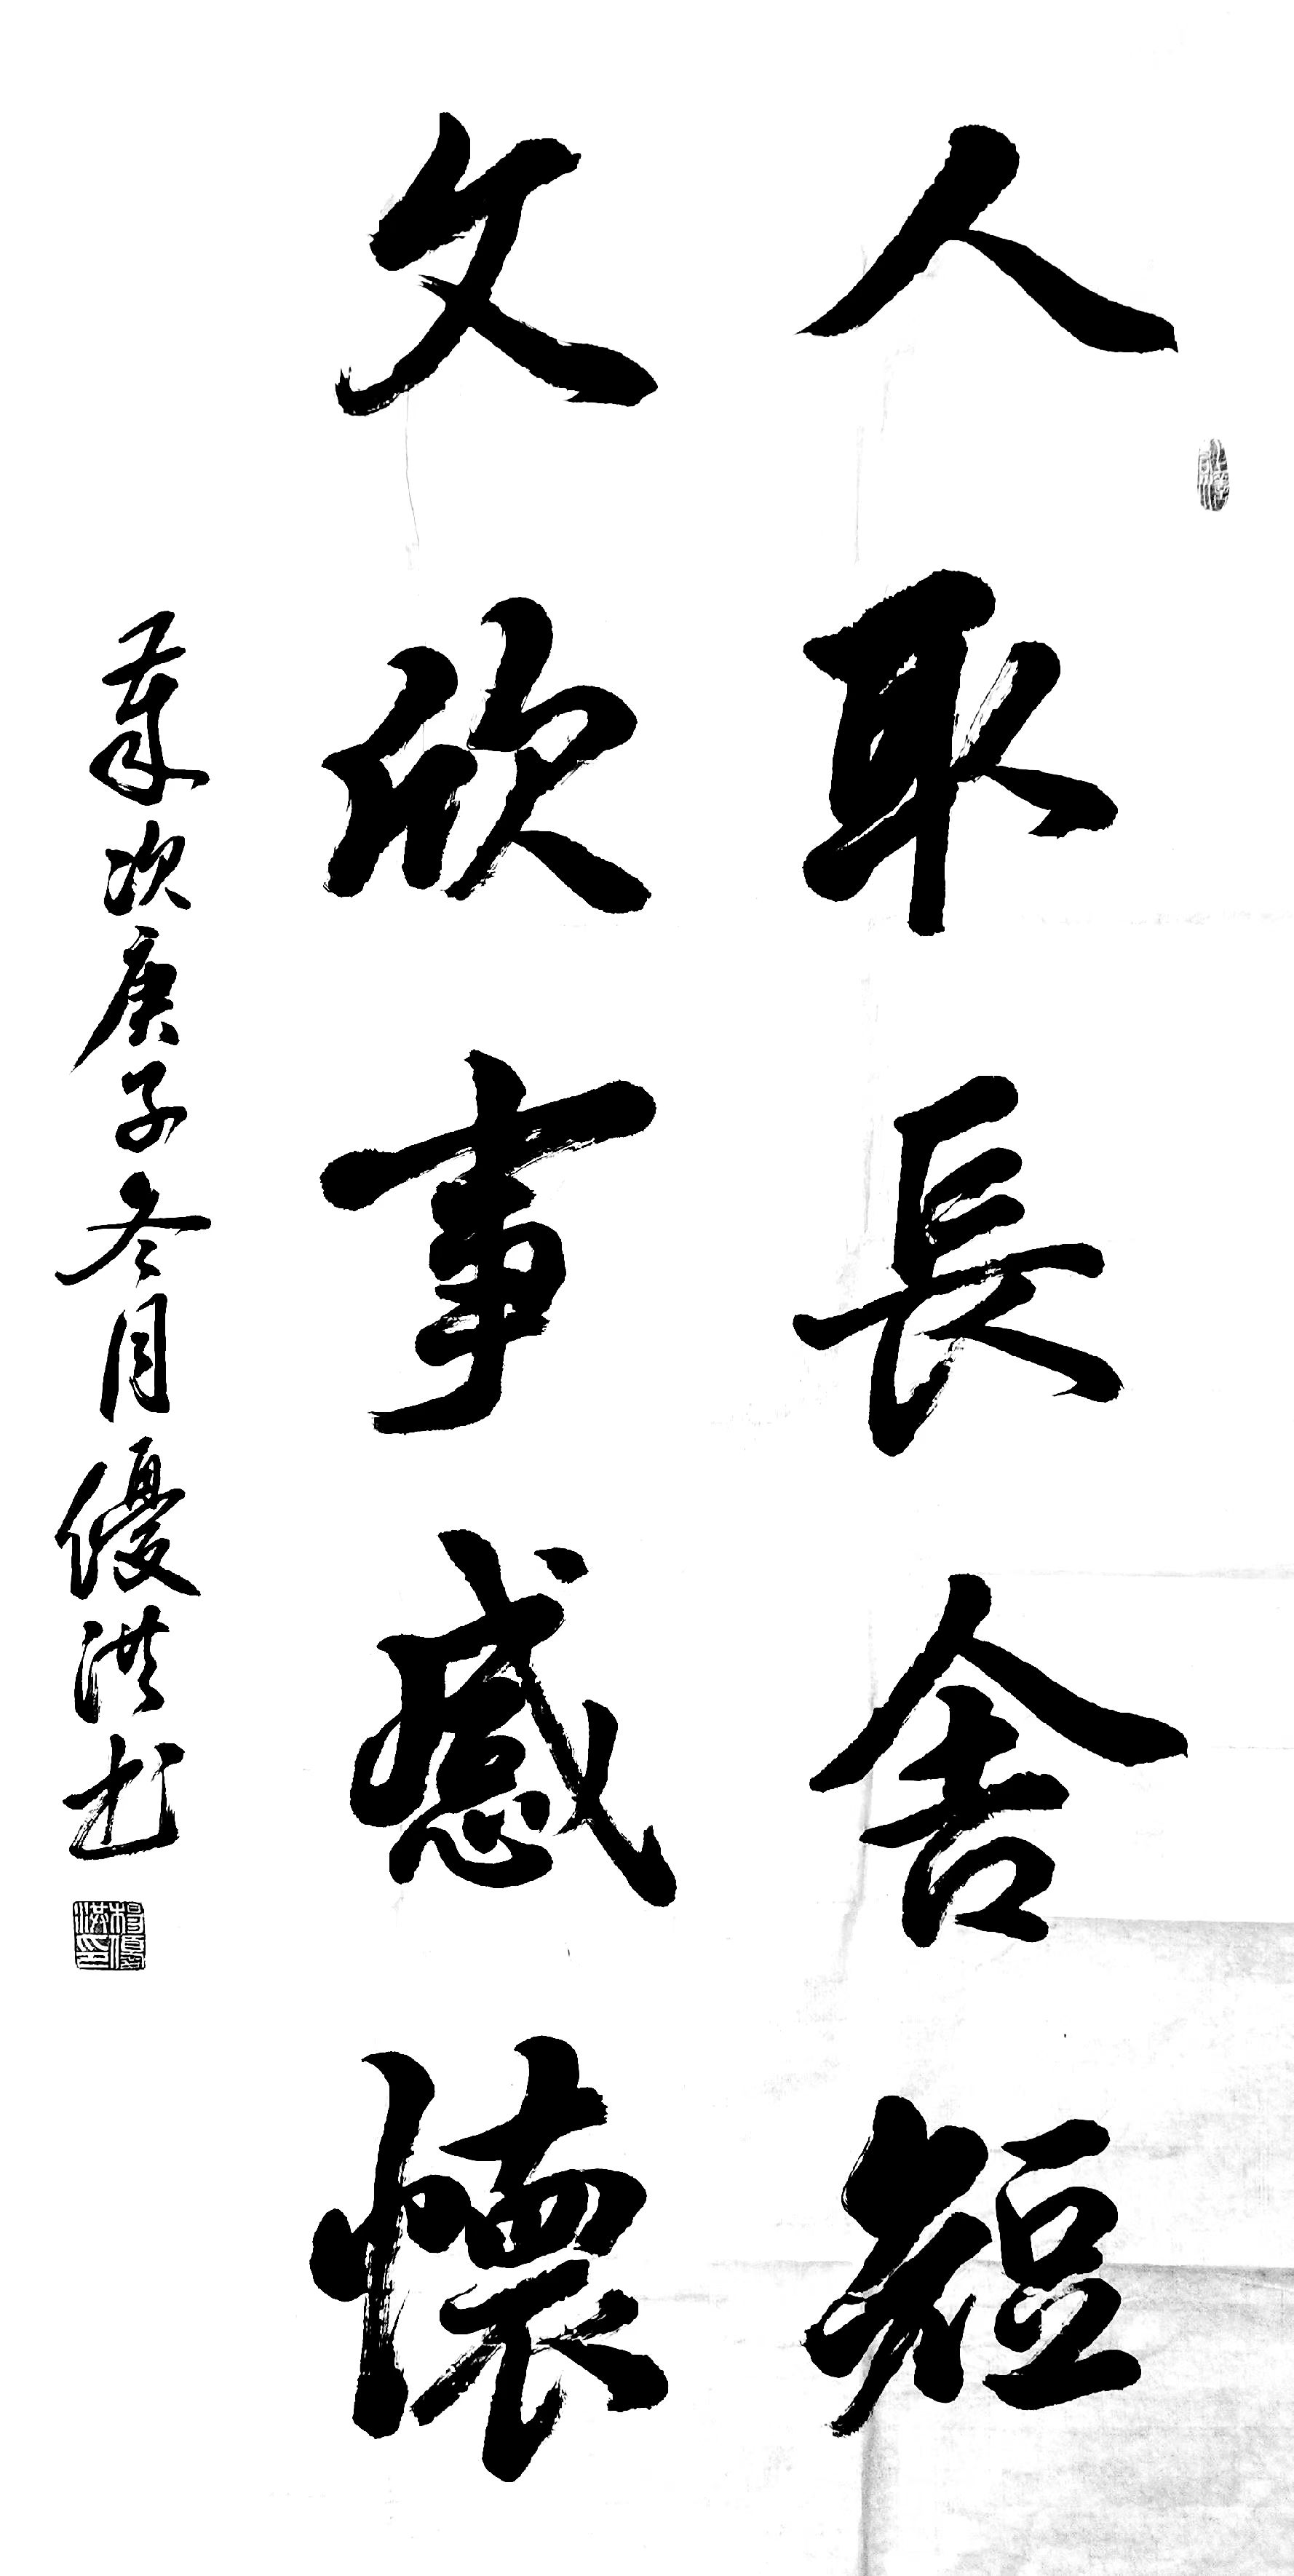 人取長舍短
文欣事感懷
歲次庚子冬月優洪书
楊優洪印